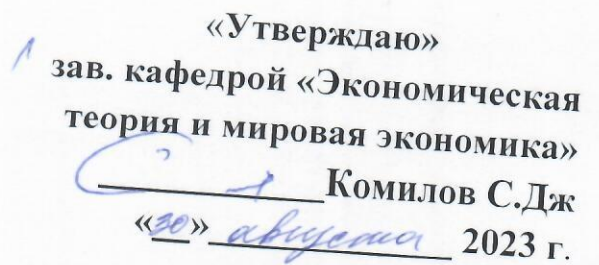 «Утверждаю»
зав. кафедрой «Экономическая
теория и мировая экономика»
Комилов С.Дж
«30» августа 2023 г.